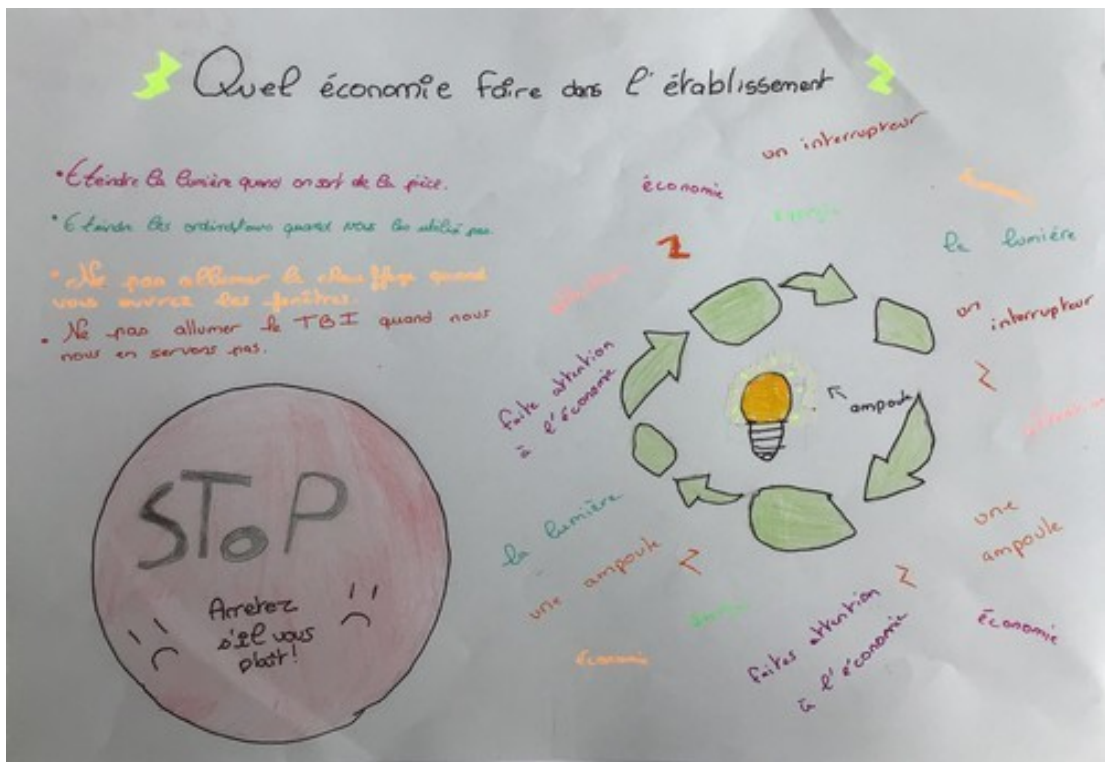 Quel économie faire dans l'établissement
• Eteindre la lumière quand on sort de la pièce.
• Eteindre les ordinateurs quand nous les utilisé pas.
• Ne pas allumer le chauffage quand
vous ouvrez les fenêtres.
• Ne pas allumer le TBI quand nous
nous en servons pas.
STOP
Arretez
s'il vous
plaît!
un interrupteur
économie
énergie
la lumière
un
interrupteur
attention
faite attention
à l'économie
ampoule
attention
la lumière
une ampoule
une
ampoule
économie
faites attention
à l'économie
économie